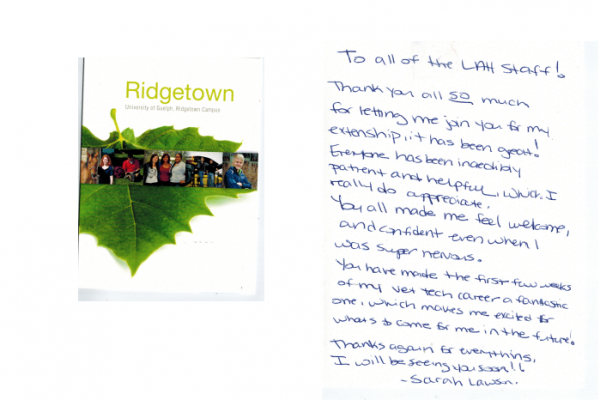 Ridgetown
University of Guelph, Ridgetown Campus
To all of the LAH Staff!
Thank you all so much
for letting me join you for my
externship, it has been great!
Everyone has been incredibly
patient and helpful, which I
really do appreciate.
You all made me feel welcome,
and confident even when I
was super nervous.
You have made the first few weeks
of my vet tech career a fantastic
one, which makes me excited for
whats to come for me in the future!
Thanks again for everything,
I will be seeing you soon!!
- Sarah Lawson.